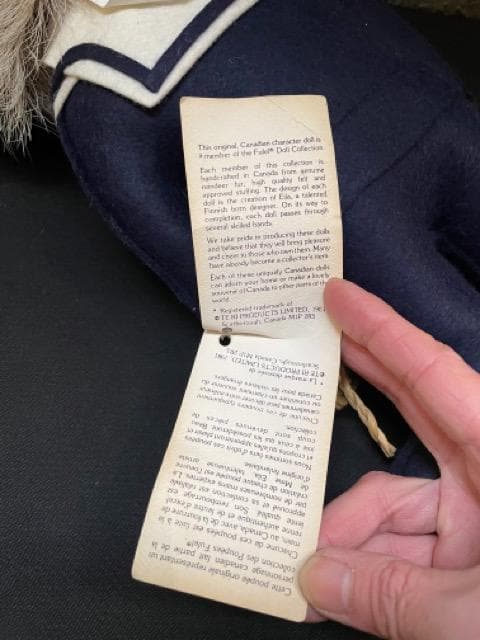 This original, Canadian character doll is
a member of the Fufel® Doll Collection.
Each member of this collection is
handcrafted in Canada from genuine
reindeer fur, high quality felt and
approved stuffing. The design of each
doll is the creation of Eila, a talented,
Finnish born designer. On its way to
completion, each doll passes through
several skilled hands.
We take pride in producing these dolls
and believe that they will bring pleasure
and cheer to those who own them. Many
have already become a collector's item.
Each of these uniquely Canadian dolls
can adorn your home or make a lovely
souvenir of Canada to other parts of the
world.
* Registered trademark of
© TE RI PRODUCTS LIMITED, 1981
Scarborough, Canada M1P
Cette poupée originale représentant un
personnage canadien fait partie de la
collection des Poupées Fufel®
Chacune de ces poupées est faite à la
main au Canada, avec de la fourrure de
renne authentique et de feutre d'excel
lente qualité. Son rembourrage est
approuvé et sa collection est réalisée
par de nombreuses mains expertes. La
création de chaque poupée est l'oeuvre
de Mme Eila, talentueuse artiste
d'origine finlandaise.
Nous sommes fiers d'offrir ces poupées
et croyons qu'elles apporteront plaisir et
joie à ceux qui les posséderont. Beau
coup sont devenues des pièces de
collection.
Chacune de ces poupées uniquement
canadiennes peut décorer votre
ou constituer un charmant souvenir du
Canada pour les visiteurs étrangers.
* La marque déposée de
© TE RI PRODUCTS LIMITED, 1981
Scarborough, Canada M1P